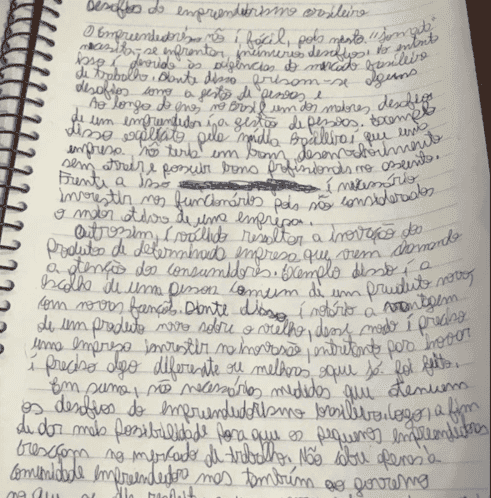 Desafios do empreendedorismo brasileiro
O Empreendedorismo não é fácil, pois nesta "jornada"
necessita-se enfrentar inúmeros desafios, no entanto
isso é devido às exigências do mercado brasileiro
de trabalho. Diante disso frisam-se alguns
desafios como a gestão de pessoas e
Ao longo do ano, no Brasil um dos maiores desafios
de um empreendedor é a gestão de pessoas. Exemplo
disso explícito pela mídia brasileira, é que uma
empresa não terá um bom desenvolvimento
sem atrair e possuir bons profissionais no assunto.
Frente a isso é necessário
investir nos funcionários pois são considerados
o maior ativo de uma empresa.
Outrossim, é válido ressaltar a inovação dos
produtos de determinada empresa que vem chamando
a atenção dos consumidores. Exemplo disso é a
escolha de uma pessoa comum de um produto novo,
com novas funções. Diante disso, é notório a vantagem
de um produto novo sobre o velho, desse modo é preciso
uma empresa investir na inovação, entretanto para inovar
é preciso algo diferente ou melhor, o que já foi feito.
Em suma, são necessárias medidas que atenuem
os desafios do empreendedorismo brasileiro. Logo, a fim
de dar mais possibilidade para que os pequenos empreendedores
cresçam no mercado de trabalho. Não cabe apenas à
comunidade empreendedora mas também ao governo
no que se diz respeito